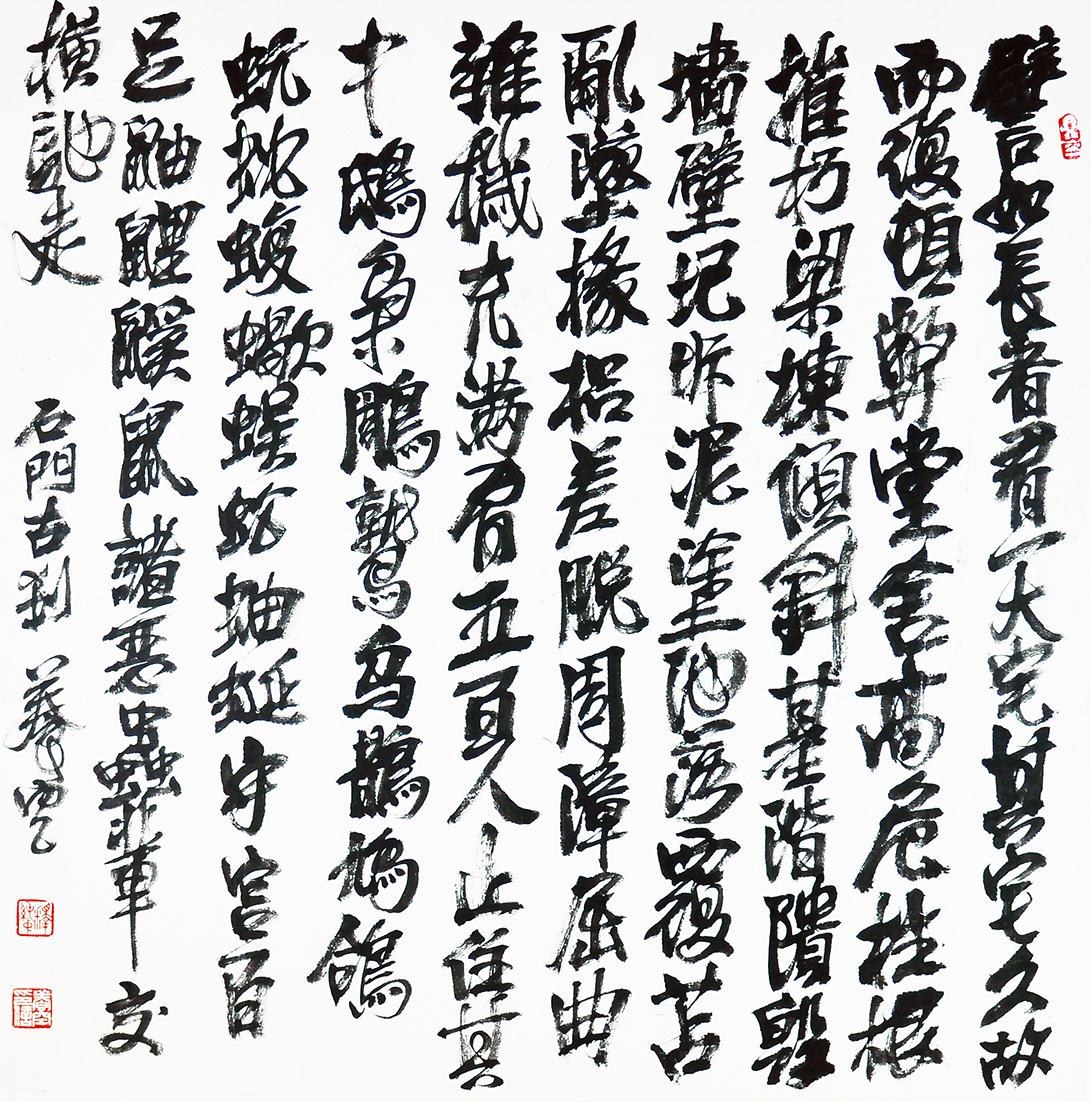 譬如長者有一大宅其宅久故
而復頓弊堂舍高危柱根
摧朽梁棟傾斜基階隤毀
墻壁圮坼泥塗阤落覆苫
亂墜椽梠差脫周障屈曲
雜穢充滿有五百人止住其
中鵄梟鵰鷲烏鵲鳩鴿
蚖蛇蝮蠍蜈蚣蚰蜒守宮百
足鼬貍鼷鼠諸惡蟲輩交
橫馳走
石門古刹